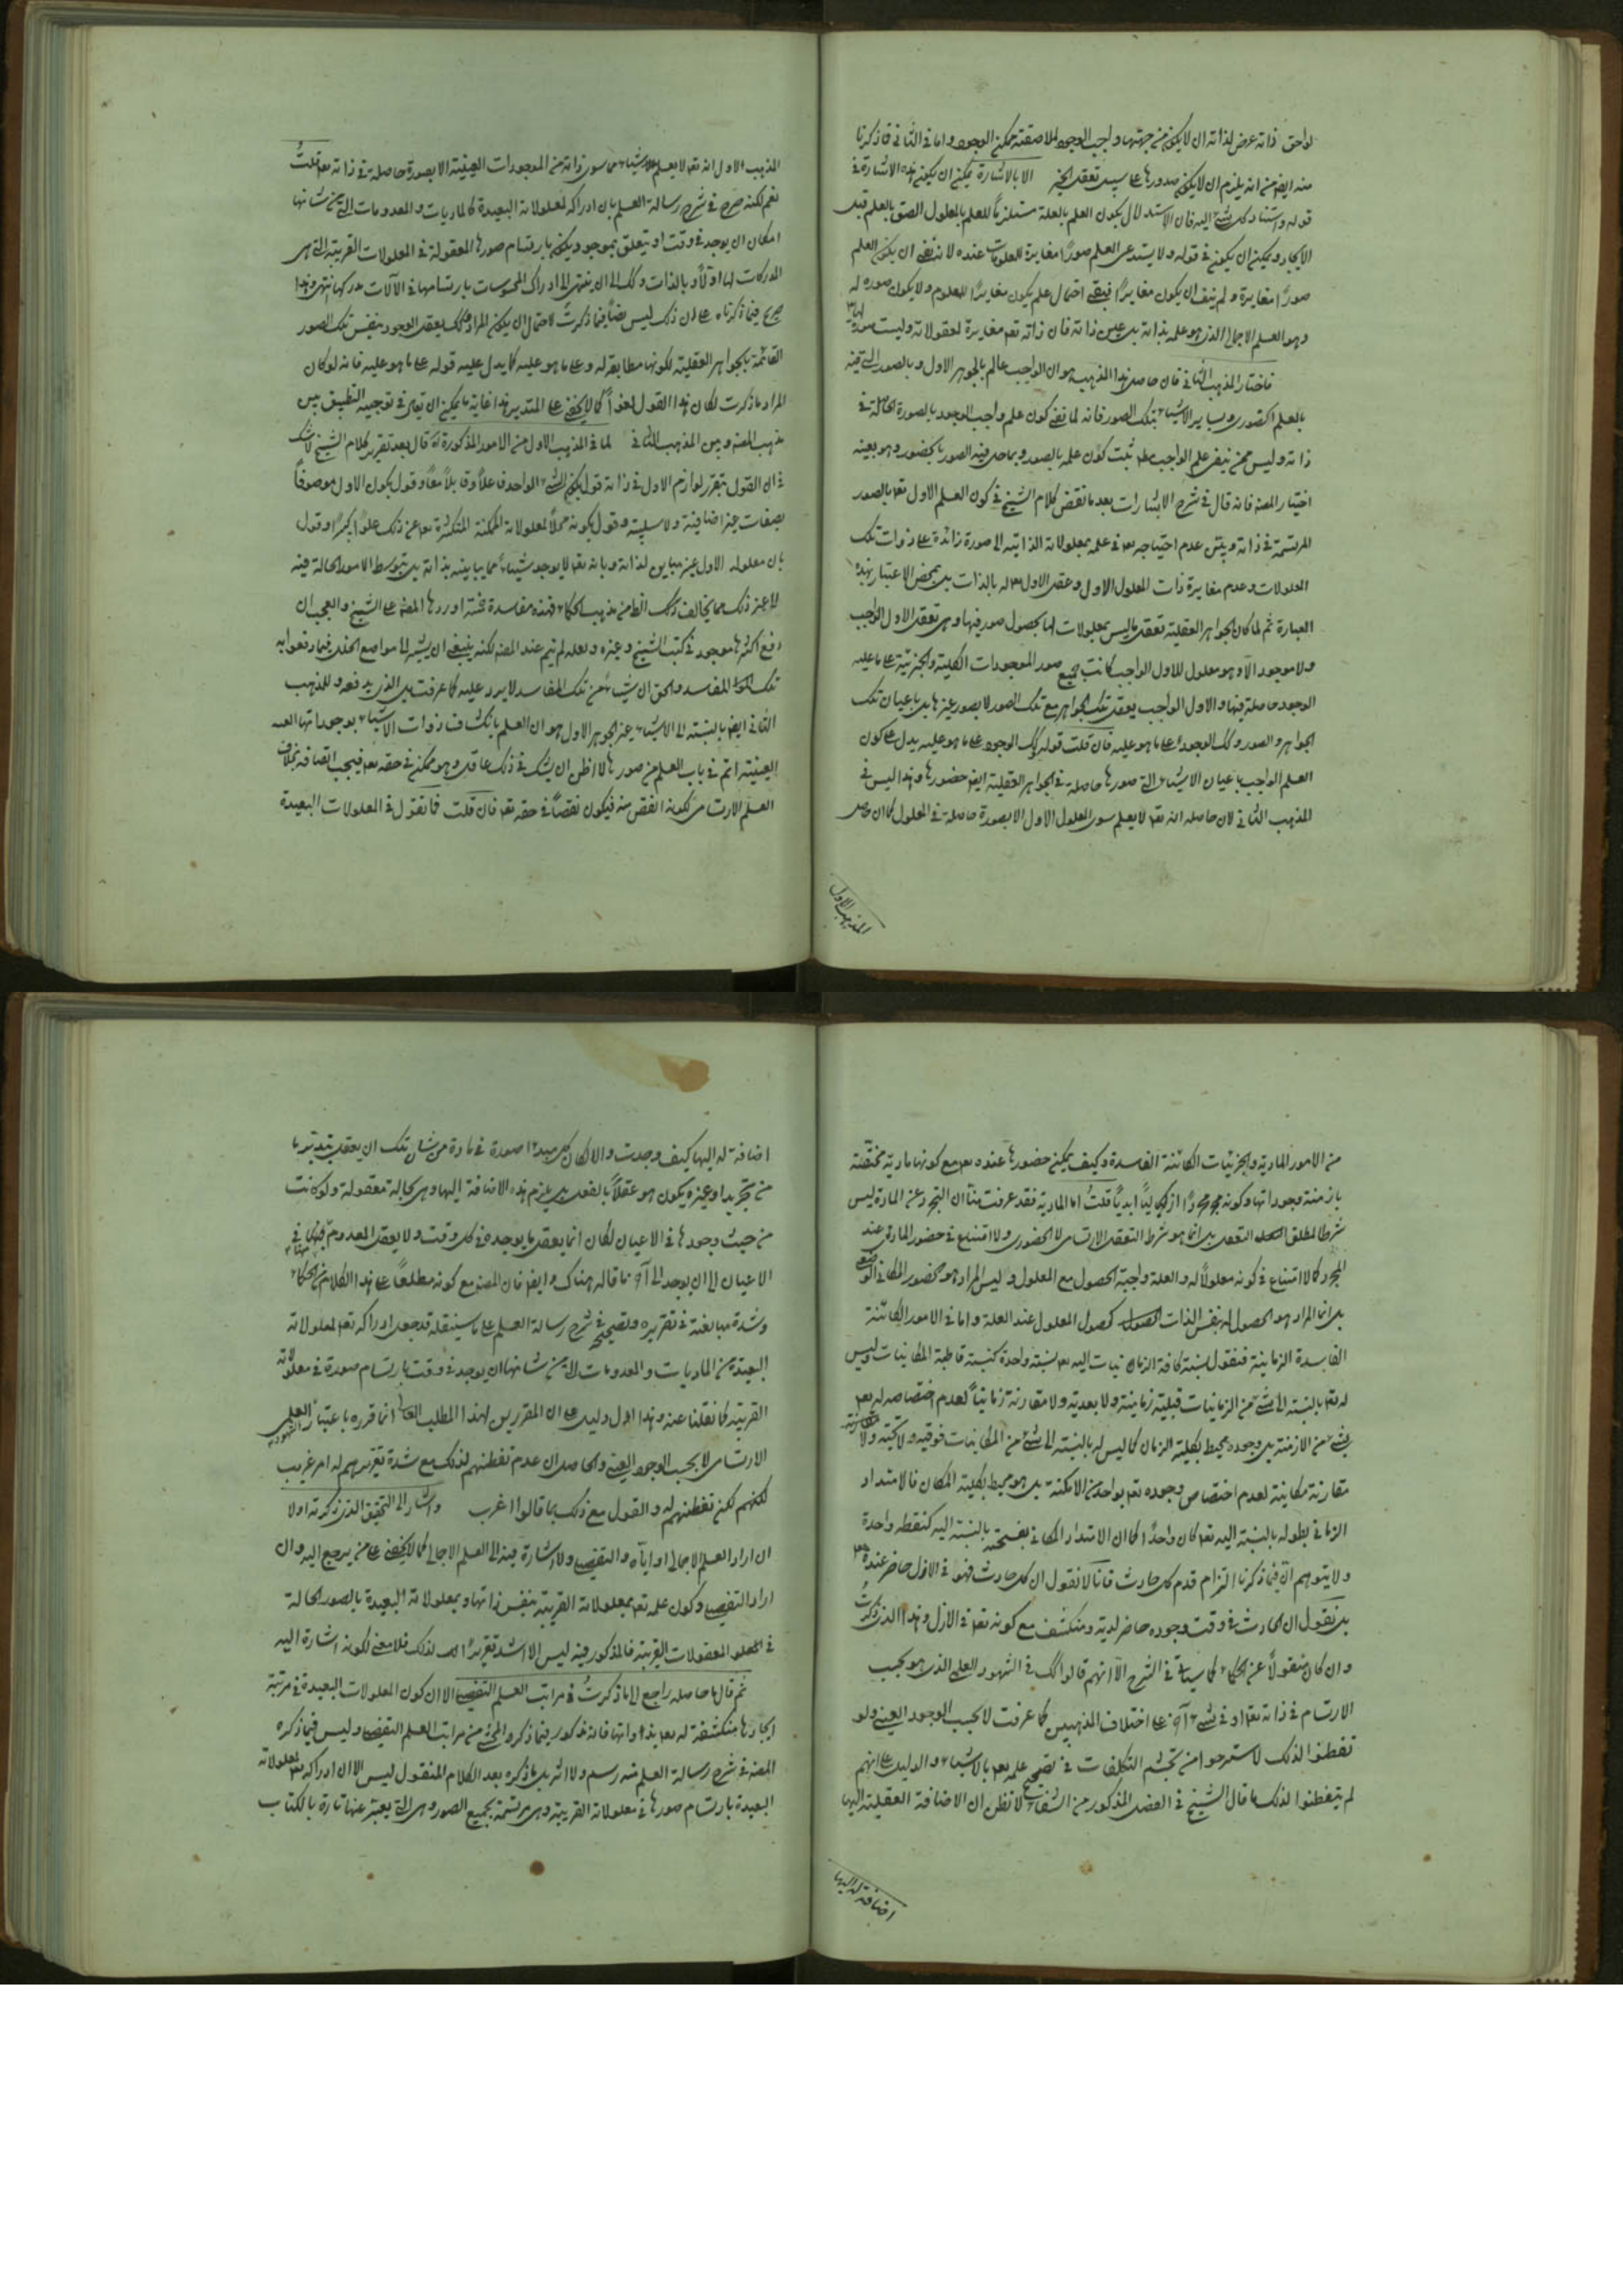 لواحق ذاته عرض لذاته ان لا يكون من جهتها واجب الوجود لملاصقته ممكن الوجود واما في الثاني فاذكرنا
منه ايضا من انه يلزم ان لا يكون صدورها على سبيل تعقل الخير الا بالاشارة يمكن ان يكون هذه الاشارة في
قوله واستناد كل شيء اليه فان الاستدلال بكون العلم بالعلة مستلزما للعلم بالمعلول الصق بالعلم قبل
الايجاد ويمكن ان يكون في قوله ولا يستدعي العلم صورا مغايرة للمعلومات عنده لانه نفى ان يكون العلم
صورا مغايرة ولم ينف ان يكون مغايرا فبقى احتمال علم يكون مغايرا للمعلوم ولا يكون صورة له
وهو العلم الاجمالي الذي هو علمه بذاته بل عين ذاته فان ذاته تعم مغايرة لمعقولاته وليست صورة لها
فاختار المذهب الثاني فان حاصل هذا المذهب هو ان الواجب عالم بالجوهر الاول وبالصور التي فيه
بالعلم الحضوري وبساير الاشياء بتلك الصور فانه لما نفى كون علم واجب الوجود بالصورة الحالة في
ذاته وليس ممن ينفي علم الواجب مطلقا ثبت كون علمه بالصور وبما حل فيه الصور بالحضور وهو بعينه
اختيار المصنف فانه قال في شرح الاشارات بعد ما نقض كلام الشيخ في كون العلم الاول تعم بالصور
المرتسمة في ذاته وبين عدم احتياجه تعم في علمه بمعلولاته الذاتية الى صورة زائدة على ذوات تلك
المعلولات وعدم مغايرة ذات المعلول الاول وعقل الاول تعم له بالذات بل بمحض الاعتبار بهذه
العبارة ثم لما كان الجواهر العقلية تعقل ما ليس بمعلولات لها بحصول صور فيها وهي تعقل الاول الواجب
ولا موجود الا وهو معلول للاول الواجب كانت جميع صور الموجودات الكلية والجزئية على ما عليه
الوجود حاصلة فيها والاول الواجب يعقل تلك الجواهر مع تلك الصور لا بصور غيرها بل باعيان تلك
الجواهر والصور وكذلك الوجود على ما هو عليه فان قلت قوله كذلك الوجود على ما هو عليه يدل على كون
العلم الواجب باعيان الاشياء التي صورها حاصلة في الجواهر العقلية ايضا حضورها وهذا ليس في
المذهب الثاني لان حاصله انه تعم لا يعلم سوى المعلول الاول الا بصورة حاصلة في المعلول كما ان حاصل
المذهب الاول
المذهب الاول انه تعم لا يعلم الاشياء مما سوى ذاته من الموجودات العينية الا بصورة حاصلة في ذاته تعم قلت
نعم لكنه صرح في شرح رسالة العلم بان ادراكه لمعلولاته البعيدة كالماديات والمعدومات التي من شانها
امكان ان يوجد في وقت او يتعلق بموجود يكون بارتسام صورها المعقولة في المعلولات القريبة التي هي
المدركات لها اولا وبالذات وكذلك الى ان ينتهي الى ادراك المحسوسات بارتسامها في الآلات مدركها انتهى وهذا
صريح فيما ذكرناه على ان ذلك ليس نصا فيما ذكرت لاحتمال ان يكون المراد وكذلك يعقل الوجود بنفس تلك الصور
القائمة بالجواهر العقلية لكونها مطابقة له وعلى ما هو عليه كما يدل عليه قوله على ما هو عليه فانه لو كان
المراد ما ذكرت لكان هذا القول لغوا كما لا يخفى على المتدبر هذا غاية ما يمكن ان يقال في توجيه التطبيق بين
مذهب المصنف وبين المذهب الثاني لما في المذهب الاول من الامور المذكورة قال بعد تقرير كلام الشيخ لا شك
في ان القول بتقرر لوازم الاول في ذاته قول بكون الشيء الواحد فاعلا وقابلا معا وقول بكون الاول موصوفا
بصفات غير اضافية ولا سلبية وقول بكونه محلا لمعلولاته الممكنة المتكثرة تعم عن ذلك علوا كبيرا وقول
بان معلوله الاول غير مباين لذاته وبانه تعم لا يوجد شيئا مما يباينه بذاته بل بتوسط الامور الحالة فيه
الى غير ذلك مما يخالف ذلك الظاهر من مذهب الحكماء فهذه مفاسدة خمسة اوردها المصنف على الشيخ والعجب ان
دفع اكثرها موجود في كتب الشيخ وغيره ولعله لم يتم عند المصنف لكنه ينبغي ان يشير الى مواضع الخلل فيما دفعوا به
تلك المفاسد والحق ان شيئا من تلك المفاسد لا يرد عليه كما عرفت بل الذي يدفعه وللمذهب
الثاني ايضا بالنسبة الى الاشياء غير الجوهر الاول هو ان العلم بانكشاف ذوات الاشياء بوجوداتها
العينية اتم في باب العلم من صورها لا اظن ان يشك في ذلك عاقل وهو ممكن في حقه تعم فيجب اتصافه بخلاف
العلم الارتسامي لكونه انقص منه فيكون نقصا في حقه تعم فان قلت فما تقول في المعلولات البعيدة
من الامور المادية والجزئيات الكائنة الفاسدة وكيف يمكن حضورها عنده تعم مع كونها مادية مختصة
بازمنة وجوداتها وكونه مجردا ازليا ابديا قلت اما المادية فقد عرفت منا ان التجرد عن المادة ليس
شرطا لمطلق التعقل بل انما هو شرط التعقل الارتسامي لا الحضوري ولا امتناع في حضور المادي عند
المجرد كما لا امتناع في كونه معلولا له والعلة واجبة الحصول مع المعلول وليس المراد هو الحضور المكاني الوضعي
بل انما المراد هو الحصول له بنفس الذات كحصول المعلول عند العلة واما في الامور الكائنة
الفاسدة الزمانية فنقول نسبة كافة الزمانيات اليه تعم نسبة واحدة كنسبة قاطبة المكانيات وليس
له تعم بالنسبة الى شيء من الزمانيات قبلية زمانية ولا بعدية ولا مقارنة زمانيا لعدم اختصاصه له تعم
بشيء من الازمنة بل وجوده محيط بكلية الزمان كما ليس له بالنسبة الى شيء من المكانيات فوقية ولا تحتية ولا
مقارنة مكانية لعدم اختصاص وجوده تعم بواحد من الامكنة بل هو محيط بكلية المكان فالامتداد
الزماني بطوله بالنسبة اليه تعم كان واحدا كما ان الامتداد المكاني بفسحته بالنسبة اليه كنقطة واحدة
ولا يتوهم ان فيما ذكرنا التزام قدم كل حادث فانا لا نقول ان كل حادث فهو في الازل حاضر عنده تعم
بل نقول ان الحادث في وقت وجوده حاضر لديه ومنكشف مع كونه تعم في الازل وهذا الذي ذكرت
وان كان منقولا عن الحكماء كما سيأتي في الشرح الا انهم قالوا ذلك في الشهود العلمي الذي هو بحسب
الارتسام في ذاته تعم او في شيء آخر على اختلاف المذهبين كما عرفت لا بحسب الوجود العيني ولو
تفطنوا لذلك لاستراحوا من تجشم التكلفات في تصحيح علمه تعم بالاشياء والدليل على انهم
لم يتفطنوا لذلك ما قال الشيخ في الفصل المذكور من الشفاء لا تظن ان الاضافة العقلية اليها
اضافة له اليها
اضافة له اليها كيف وجدت والا لكان كل مبدء صورة في مادة من شان تلك ان يعقل بتدبير ما
من تجريد او غيره يكون هو عقلا بالفعل بل يلزم هذه الاضافة اليها وهي بحالة معقولة ولو كانت
من حيث وجودها في الاعيان لكان انما يعقل ما يوجد في كل وقت ولا يعقل المعدوم منها في
الاعيان الى ان يوجد الى آخر ما قاله هناك وايضا فان المصنف مع كونه مطلعا على هذا الكلام من الحكماء
وشدة مبالغته في تقريره وتصحيحه في شرح رسالة العلم على ما سينقله قد جعل ادراكه تعم لمعلولاته
البعيدة من الماديات والمعدومات التي من شانها ان يوجد في وقت بارتسام صورة في معلولاته
القريبة كما نقلنا عنه وهذا ادل دليل على ان المقررين لهذا المطلب العالي انما قرره باعتبار الشهود العلمي
الارتسامي لا بحسب الوجود العيني والحاصل ان عدم تفطنهم لذلك مع شدة تقريرهم له امر غريب
لكنهم لكن تفطنهم له والقول مع ذلك بما قالوا اغرب واشار الى التحقيق الذي ذكرته اولا
ان اراد العلم الاجمالي او اياه والتفصيلي ولا اشارة فيه الى العلم الاجمالي كما لا يخفى على من يرجع اليه وان
اراد التفصيلي وكون علمه تعم بمعلولاته القريبة بنفس ذاتها وبمعلولاته البعيدة بالصور الحالة
في المعقولات القريبة فالمذكور فيه ليس الا اشد تقريرا لذلك فلا معنى لكونه اشارة اليه
ثم قال ما حاصله راجع الى ما ذكرت في مراتب العلم التفصيلي الا ان كون المعلولات البعيدة في مرتبة
ايجادها منكشفة له تعم بذواتها فانه مذكور فيما ذكره والمحشي من مراتب العلم التفصيلي وليس فيما ذكره
المصنف في شرح رسالة العلم منه رسم ولا اثر بل ما ذكره بعد الكلام المنقول ليس الا ان ادراكه تعم لمعلولاته
البعيدة بارتسام صورها في معلولاته القريبة وهي مرتسمة بجميع الصور وهي التي يعبر عنها تارة بالكتاب